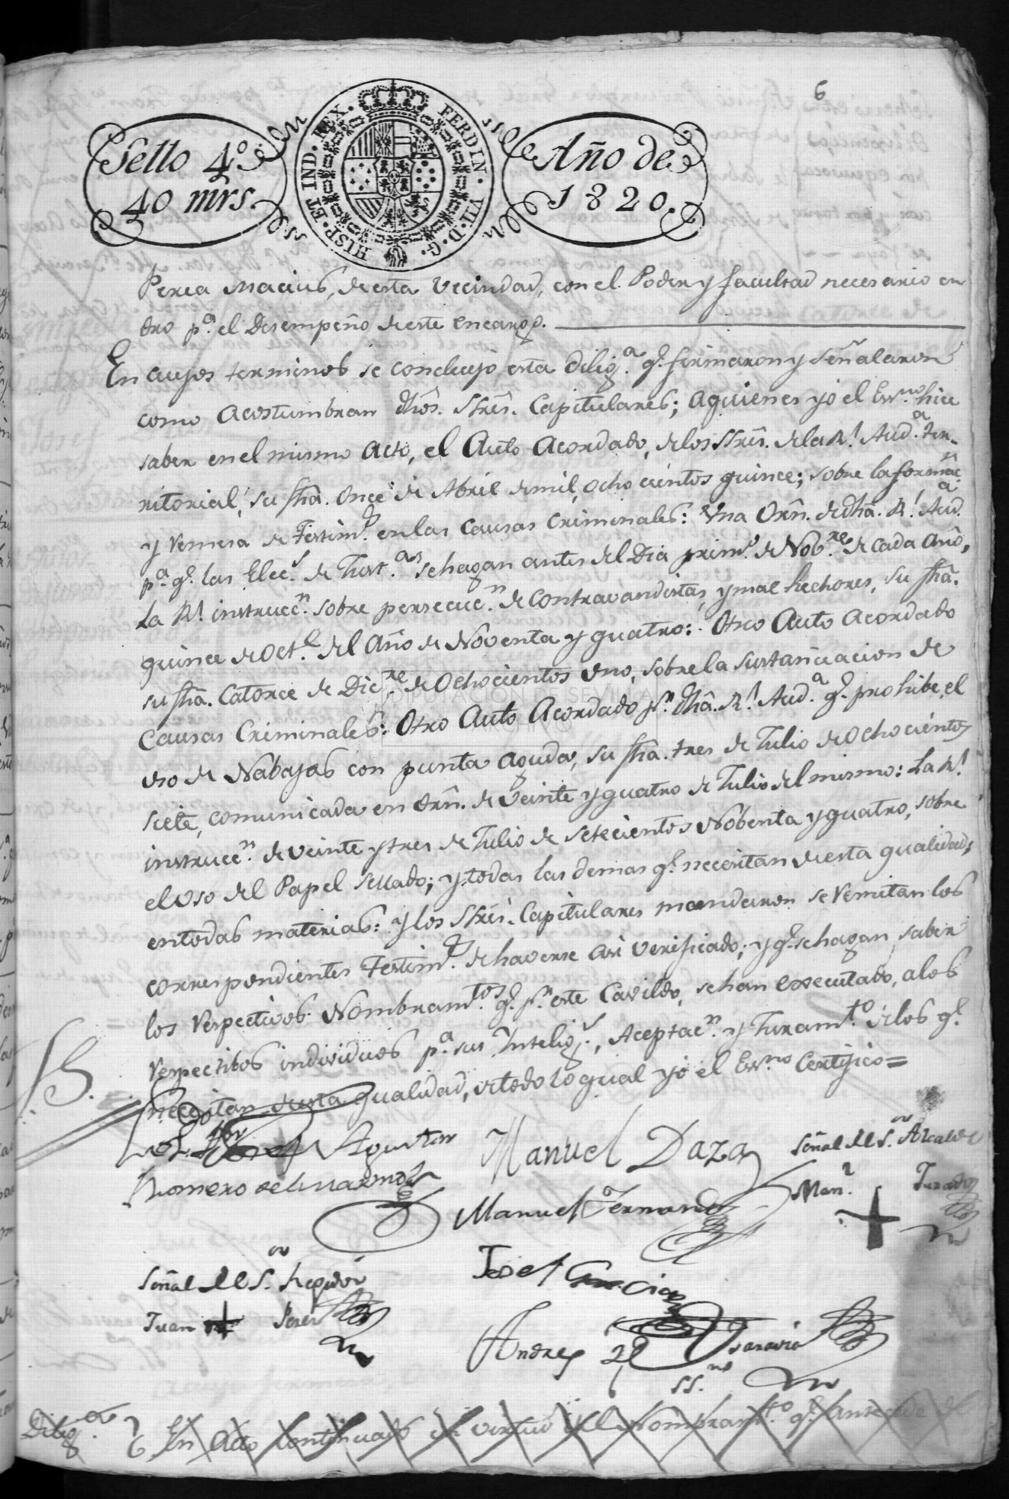 6
Sello 4º.
40 mrs.
HISP. ET IND. REX. FERDIN. VII. D. G.
Año de
1820.
Perea Macias, de esta Vecindad, con el Poder y facultad necesario en
dro pª. el Desempeño de este encargo.
En cuyos terminos se concluyó esta Diligª. qe. firmaron y Señalaron
como Acostumbran dhos. Sres. Capitulares; aquienes yo el Essno. hice
saber en el mismo Acto, el Auto Acordado, de los Sres. de la Rl. Audª. ter-
ritorial, su fha. Once de Abril de mil ochocientos quince; sobre la formac.
y remesa de Testimº. en las Causas Criminales: Una Orn. de dha. Rl. Audª.
pª. qe. las Elecs. de Justas. se hagan antes del Dia primº. de Nobre. de cada año,
La Rl. instruccn. sobre persecucn. de Contravandistas, y mal hechores, su fha.
quince de Oct. del Año de Noventa y quatro: Otro Auto Acordado
su fha. Catorce de Dicre. de Ochocientos uno, sobre la sustanciacion de
Causas Criminales: Otro Auto Acordado pr. dha. Rl. Audª. qe. prohibe el
uso de Nabajas con punta aguda, su fha. tres de Julio de ochocientos
siete, comunicada en Orn. de veinte y quatro de Julio del mismo: La Rl.
instruccn. de veinte y tres de Julio de setecientos Nobenta y quatro, sobre
el uso del Papel sellado; y todas las demas qe. necesitan de esta qualidad,
en todas materias: y los Sres. Capitulares mandaron se remitan los
correspondientes Testimº. de haverse asi verificado; y qe. se hagan saber
los respectivos Nombramtos. qe. pr. este Cavildo, se han executado, a los
respectibos individuos pª. sus Inteligª., Aceptacn. y Juramto. de los qe.
necesitan de esta qualidad, de todo lo qual yo el Essno. Certifico=
Agustin
Romero de
Manuel Daza
Señal del Sor. Alcalde
Manl. Jurado
Manuel Fernandz
Señal del Sor. Regidor
Juan Perez
Josef Garcia
Andres
Saravia
SSno.
Diliga. En Acto Continuado de virtud del Nombramto. qe. antecede